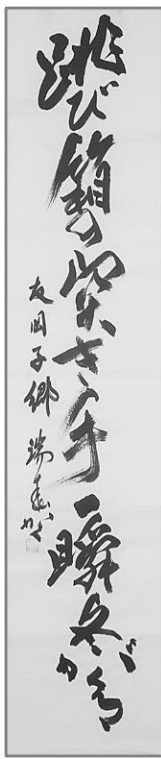 跳び箱の突き手一瞬冬が来
友岡子郷